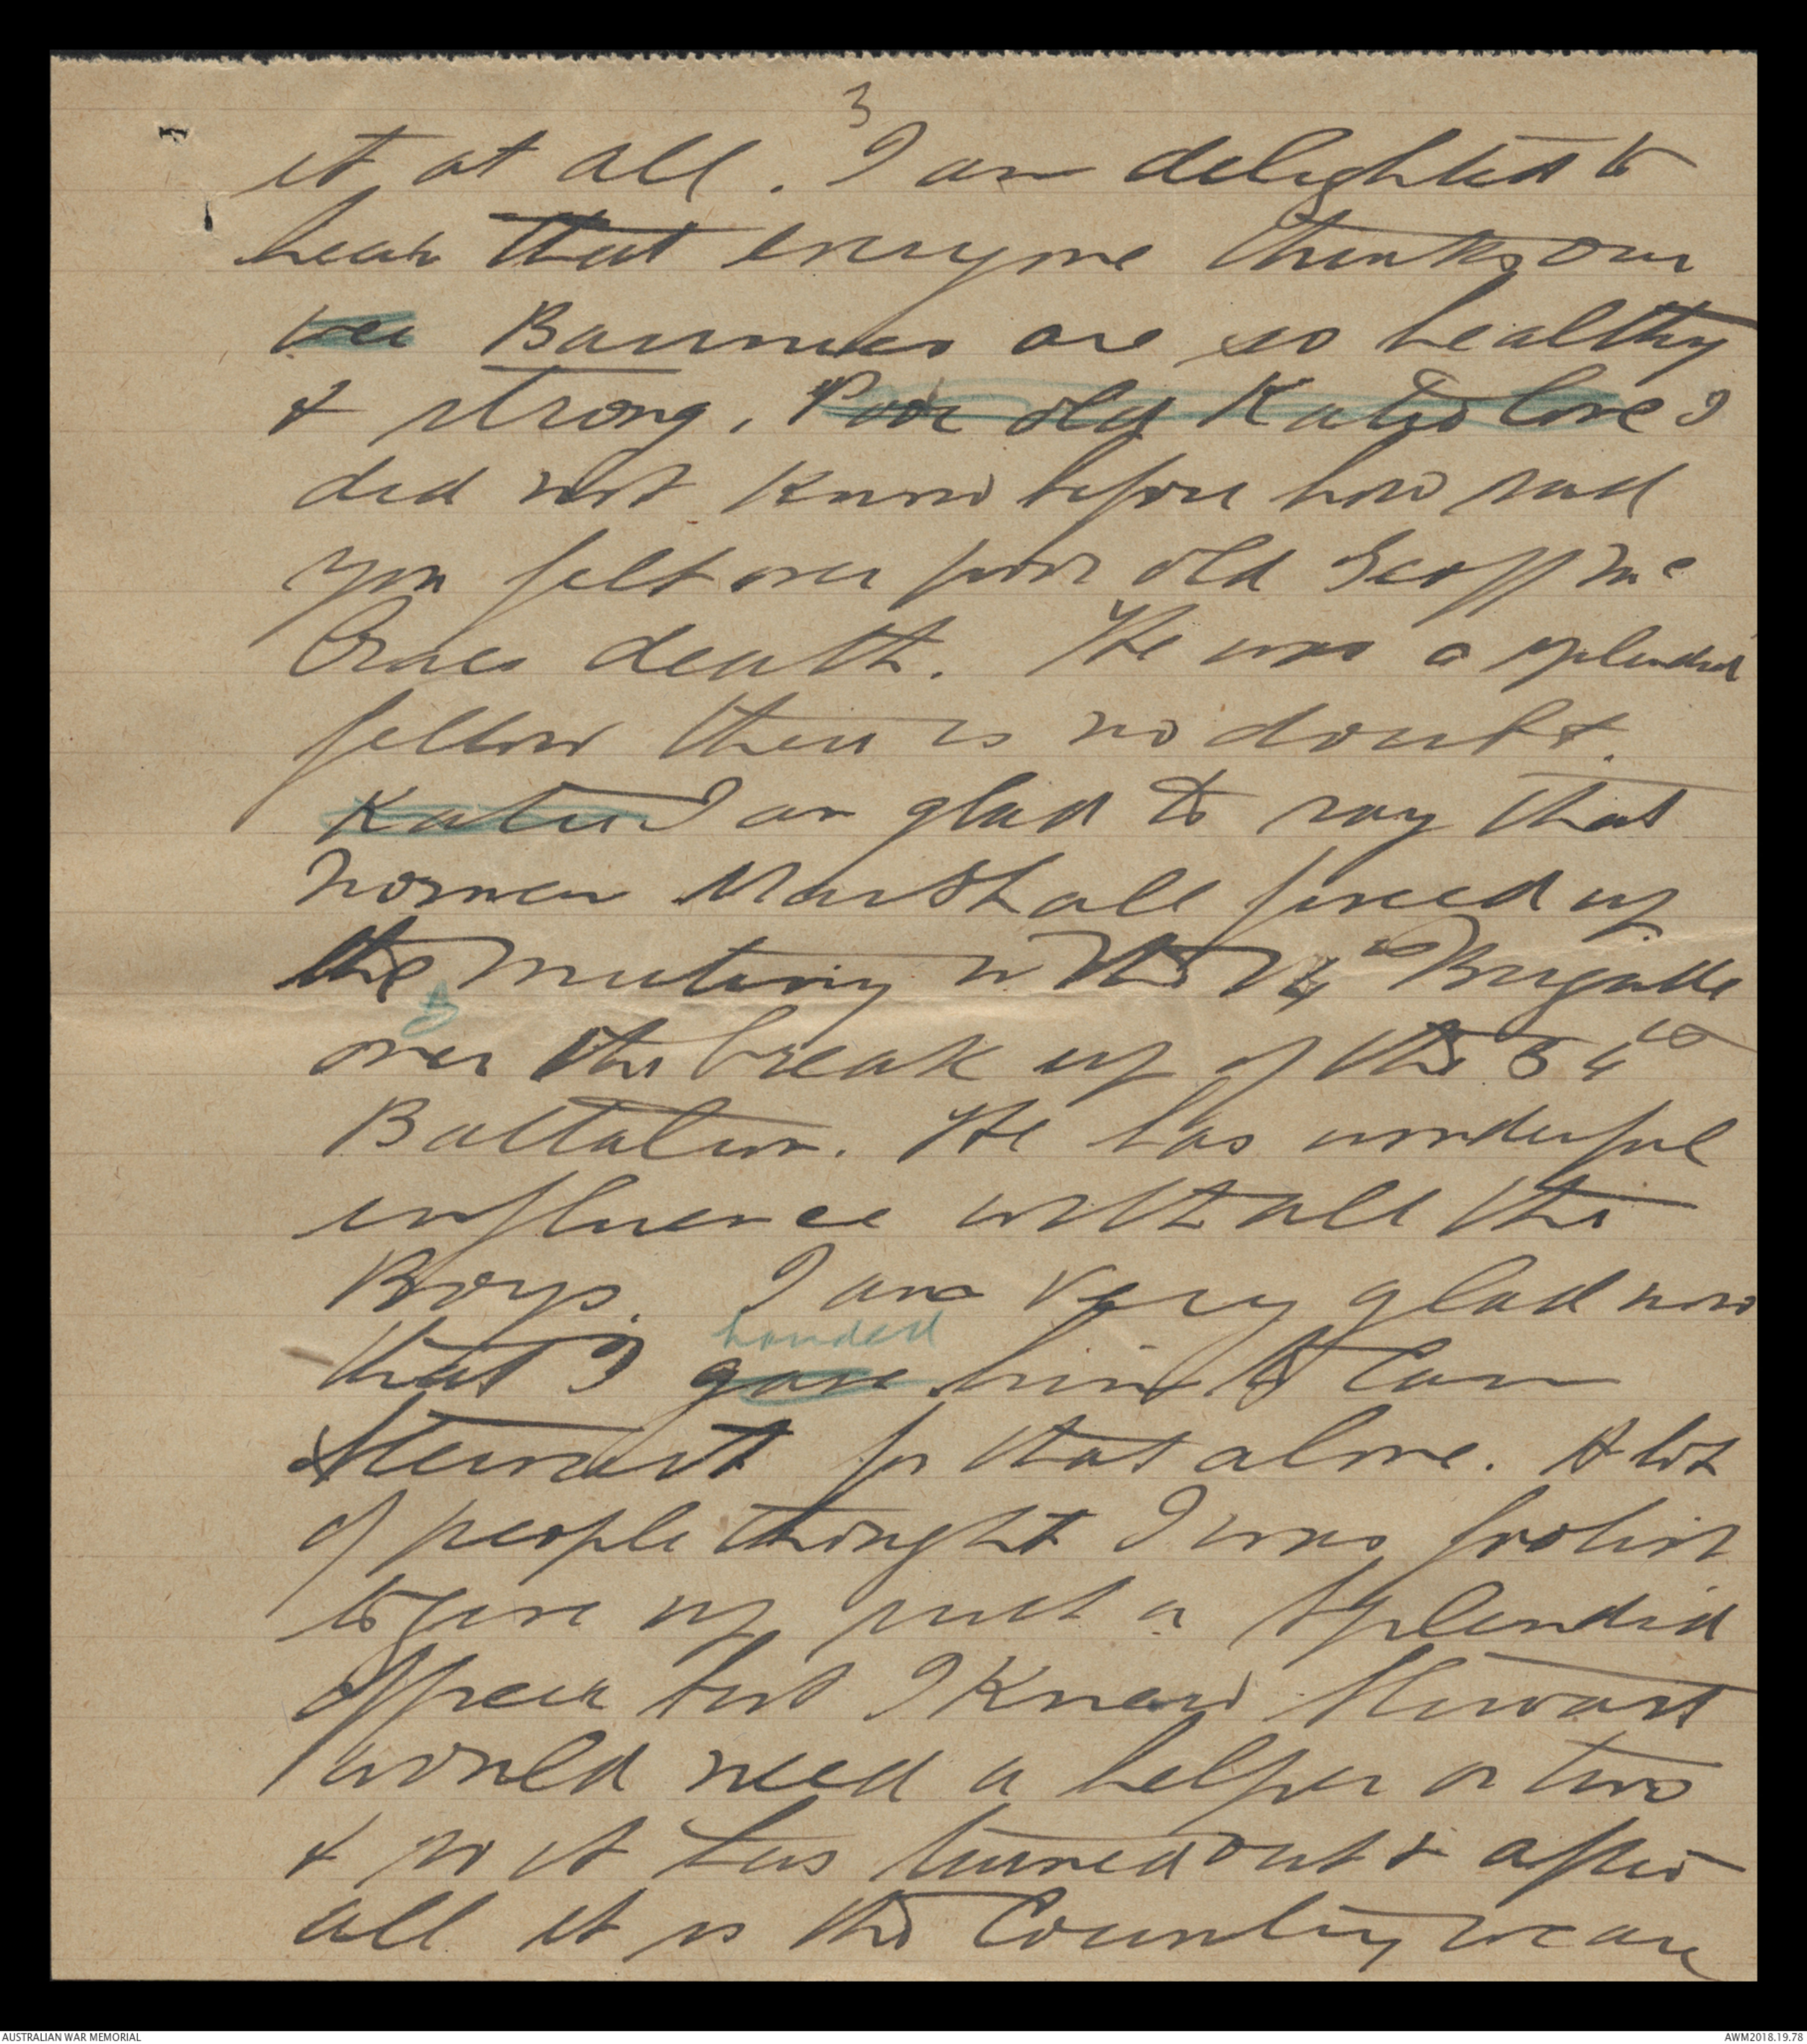 3
it at all. I am delighted to
hear that everyone thinks our
wee Bairnies are so healthy
& strong. Poor old Katie love I
did not know before how sad
you felt over poor old Geoff Mc
Craes death. He was a splendid
fellow there is no doubt.
Katie I am glad to say that
Norman Marshall fixed up
the mutiny in the 14th Brigade
over the break up of the 54th
Battalion. He has wonderful
influence with all the
Boys. I am very glad now
handed
that I gave him to Cam
Stewart for that alone. A lot
of people thought I was foolish
to give up such a splendid
officer but I knew Stewart
would need a helper or two
& so it has turned out & after
all it is the Country we are
AUSTRALIAN WAR MEMORIAL
AWM2018.19.78